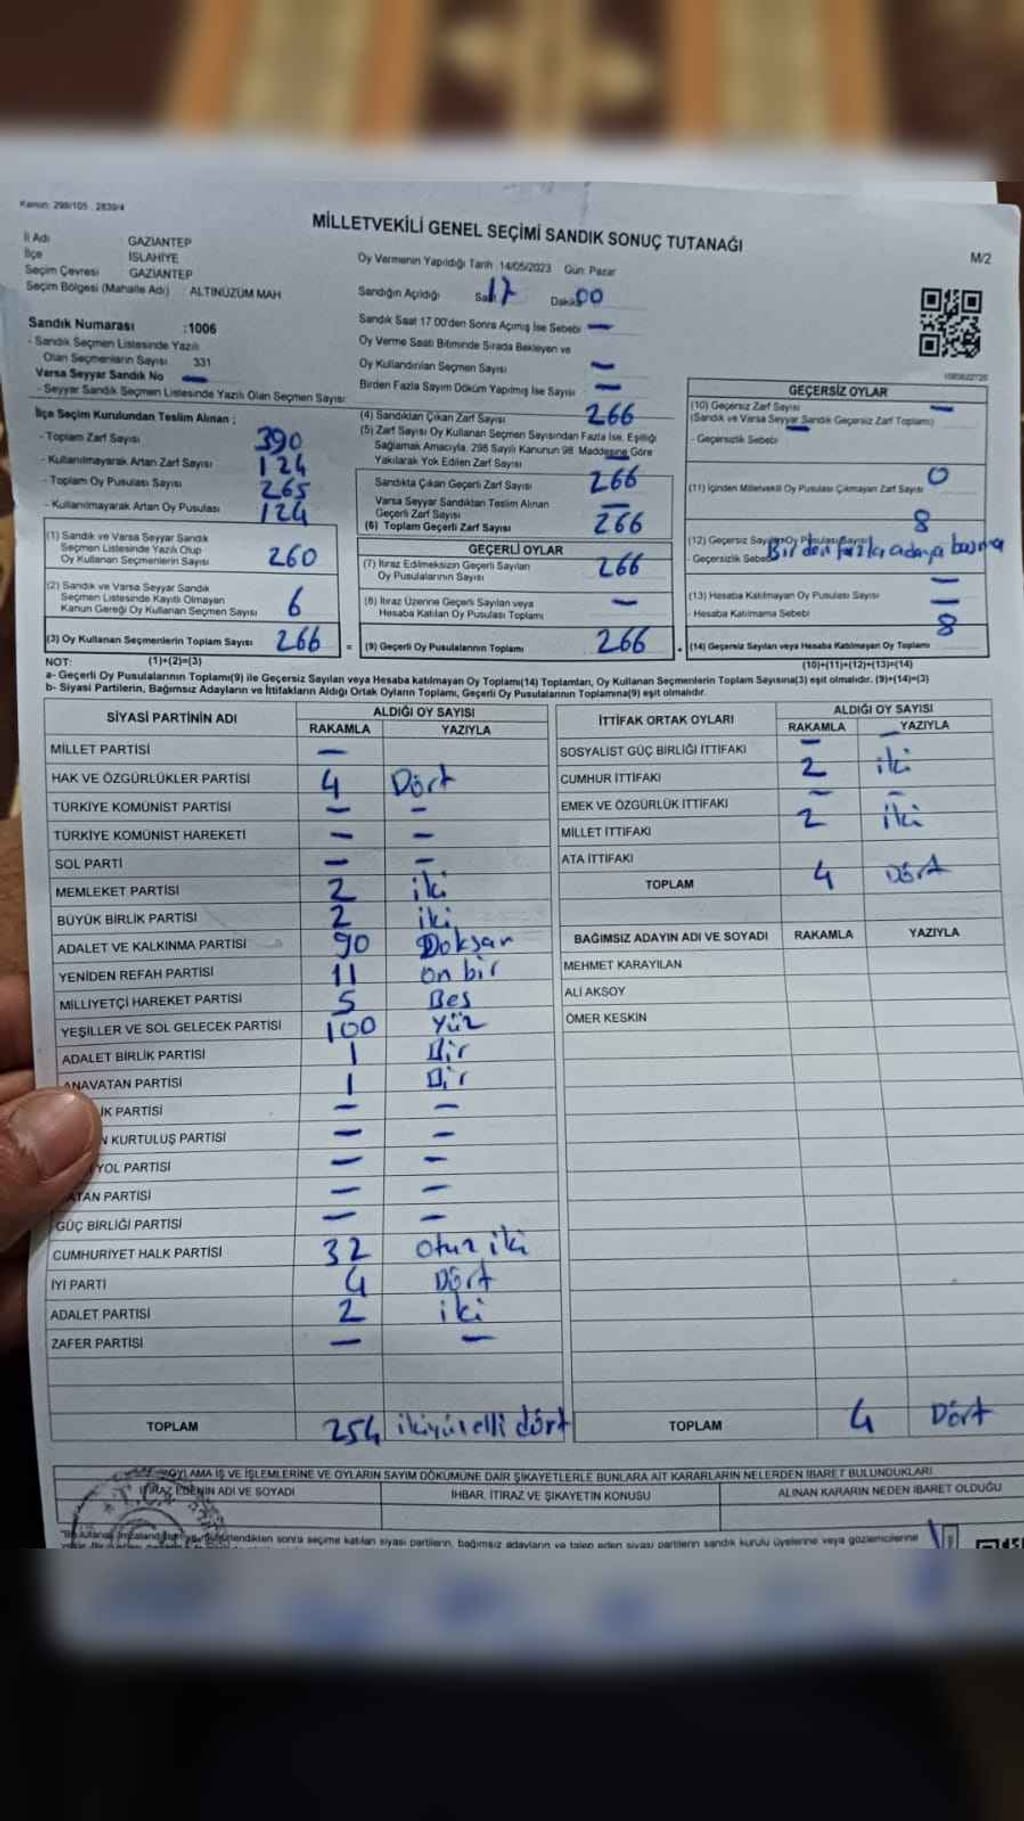 Kanun: 298/105 , 2839/4
MİLLETVEKİLİ GENEL SEÇİMİ SANDIK SONUÇ TUTANAĞI
M/2
İl Adı GAZİANTEP
İlçe İSLAHİYE
Seçim Çevresi GAZİANTEP
Seçim Bölgesi (Mahalle Adı) ALTINÜZÜM MAH
Oy Vermenin Yapıldığı Tarih 14/05/2023 Gün: Pazar
Sandığın Açıldığı Saat 17 Dakika 00
Sandık Saat 17.00'den Sonra Açılmış İse Sebebi —
Oy Verme Saati Bitiminde Sırada Bekleyen ve
Oy Kullandırılan Seçmen Sayısı —
Birden Fazla Sayım Döküm Yapılmış İse Sayısı —
Sandık Numarası :1006
- Sandık Seçmen Listesinde Yazılı
Olan Seçmenlerin Sayısı 331
Varsa Seyyar Sandık No —
- Seyyar Sandık Seçmen Listesinde Yazılı Olan Seçmen Sayısı:
İlçe Seçim Kurulundan Teslim Alınan ;
- Toplam Zarf Sayısı 390
- Kullanılmayarak Artan Zarf Sayısı 124
- Toplam Oy Pusulası Sayısı 265
- Kullanılmayarak Artan Oy Pusulası 124
(1) Sandık ve Varsa Seyyar Sandık
Seçmen Listesinde Yazılı Olup
Oy Kullanan Seçmenlerin Sayısı 260
(2) Sandık ve Varsa Seyyar Sandık
Seçmen Listesinde Kayıtlı Olmayan
Kanun Gereği Oy Kullanan Seçmen Sayısı 6
(3) Oy Kullanan Seçmenlerin Toplam Sayısı 266
(4) Sandıktan Çıkan Zarf Sayısı 266
(5) Zarf Sayısı Oy Kullanan Seçmen Sayısından Fazla İse, Eşitliği
Sağlamak Amacıyla, 298 Sayılı Kanunun 98. Maddesine Göre
Yakılarak Yok Edilen Zarf Sayısı —
Sandıkta Çıkan Geçerli Zarf Sayısı 266
Varsa Seyyar Sandıktan Teslim Alınan
Geçerli Zarf Sayısı —
(6) Toplam Geçerli Zarf Sayısı 266
GEÇERLİ OYLAR
(7) İtiraz Edilmeksizin Geçerli Sayılan
Oy Pusulalarının Sayısı 266
(8) İtiraz Üzerine Geçerli Sayılan veya
Hesaba Katılan Oy Pusulası Toplamı —
= (9) Geçerli Oy Pusulalarının Toplamı 266
GEÇERSİZ OYLAR
(10) Geçersiz Zarf Sayısı —
(Sandık ve Varsa Seyyar Sandık Geçersiz Zarf Toplamı)
- Geçersizlik Sebebi —
(11) İçinden Milletvekili Oy Pusulası Çıkmayan Zarf Sayısı 0
(12) Geçersiz Sayılan Oy Pusulası Sayısı 8
- Geçersizlik Sebebi Birden fazla adaya basma
(13) Hesaba Katılmayan Oy Pusulası Sayısı —
- Hesaba Katılmama Sebebi —
(14) Geçersiz Sayılan veya Hesaba Katılmayan Oy Toplamı 8
NOT: (1)+(2)=(3)
(10)+(11)+(12)+(13)=(14)
a- Geçerli Oy Pusulalarının Toplamı(9) ile Geçersiz Sayılan veya Hesaba katılmayan Oy Toplamı(14) Toplamları, Oy Kullanan Seçmenlerin Toplam Sayısına(3) eşit olmalıdır. (9)+(14)=(3)
b- Siyasi Partilerin, Bağımsız Adayların ve İttifakların Aldığı Ortak Oyların Toplamı, Geçerli Oy Pusulalarının Toplamına(9) eşit olmalıdır.
SİYASİ PARTİNİN ADI ALDIĞI OY SAYISI
RAKAMLA YAZIYLA
MİLLET PARTİSİ —
HAK VE ÖZGÜRLÜKLER PARTİSİ 4 Dört
TÜRKİYE KOMÜNİST PARTİSİ — —
TÜRKİYE KOMÜNİST HAREKETİ — —
SOL PARTİ — —
MEMLEKET PARTİSİ 2 iki
BÜYÜK BİRLİK PARTİSİ 2 iki
ADALET VE KALKINMA PARTİSİ 90 Doksan
YENİDEN REFAH PARTİSİ 11 on bir
MİLLİYETÇİ HAREKET PARTİSİ 5 Beş
YEŞİLLER VE SOL GELECEK PARTİSİ 100 Yüz
ADALET BİRLİK PARTİSİ 1 Bir
ANAVATAN PARTİSİ 1 Bir
İK PARTİSİ — —
KURTULUŞ PARTİSİ — —
YOL PARTİSİ — —
ATAN PARTİSİ — —
GÜÇ BİRLİĞİ PARTİSİ — —
CUMHURİYET HALK PARTİSİ 32 Otuz iki
İYİ PARTİ 4 Dört
ADALET PARTİSİ 2 iki
ZAFER PARTİSİ — —
TOPLAM 254 ikiyüz elli dört
İTTİFAK ORTAK OYLARI ALDIĞI OY SAYISI
RAKAMLA YAZIYLA
SOSYALİST GÜÇ BİRLİĞİ İTTİFAKI — —
CUMHUR İTTİFAKI 2 iki
EMEK VE ÖZGÜRLÜK İTTİFAKI — —
MİLLET İTTİFAKI 2 iki
ATA İTTİFAKI
TOPLAM 4 Dört
BAĞIMSIZ ADAYIN ADI VE SOYADI RAKAMLA YAZIYLA
MEHMET KARAYILAN
ALİ AKSOY
ÖMER KESKİN
TOPLAM 4 Dört
OYLAMA İŞ VE İŞLEMLERİNE VE OYLARIN SAYIM DÖKÜMÜNE DAİR ŞİKAYETLERLE BUNLARA AİT KARARLARIN NELERDEN İBARET BULUNDUKLARI
İTİRAZ EDENİN ADI VE SOYADI İHBAR, İTİRAZ VE ŞİKAYETİN KONUSU ALINAN KARARIN NEDEN İBARET OLDUĞU
T.C.
sonra seçime katılan siyasi partilerin, bağımsız adayların ve talep eden siyasi partilerin sandık kurulu üyelerine veya gözlemcilerine